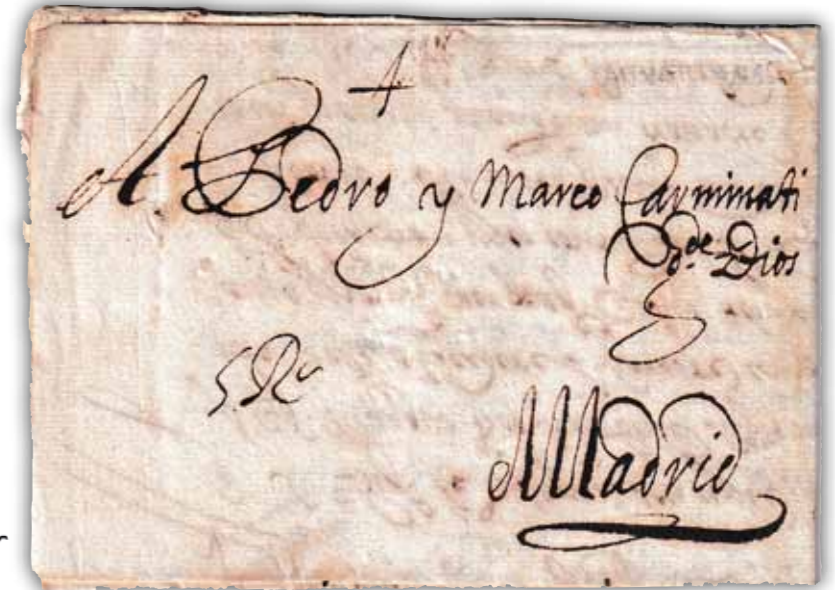 A Pedro y Marco Carminati
de Dios
5 Rs
Madrid